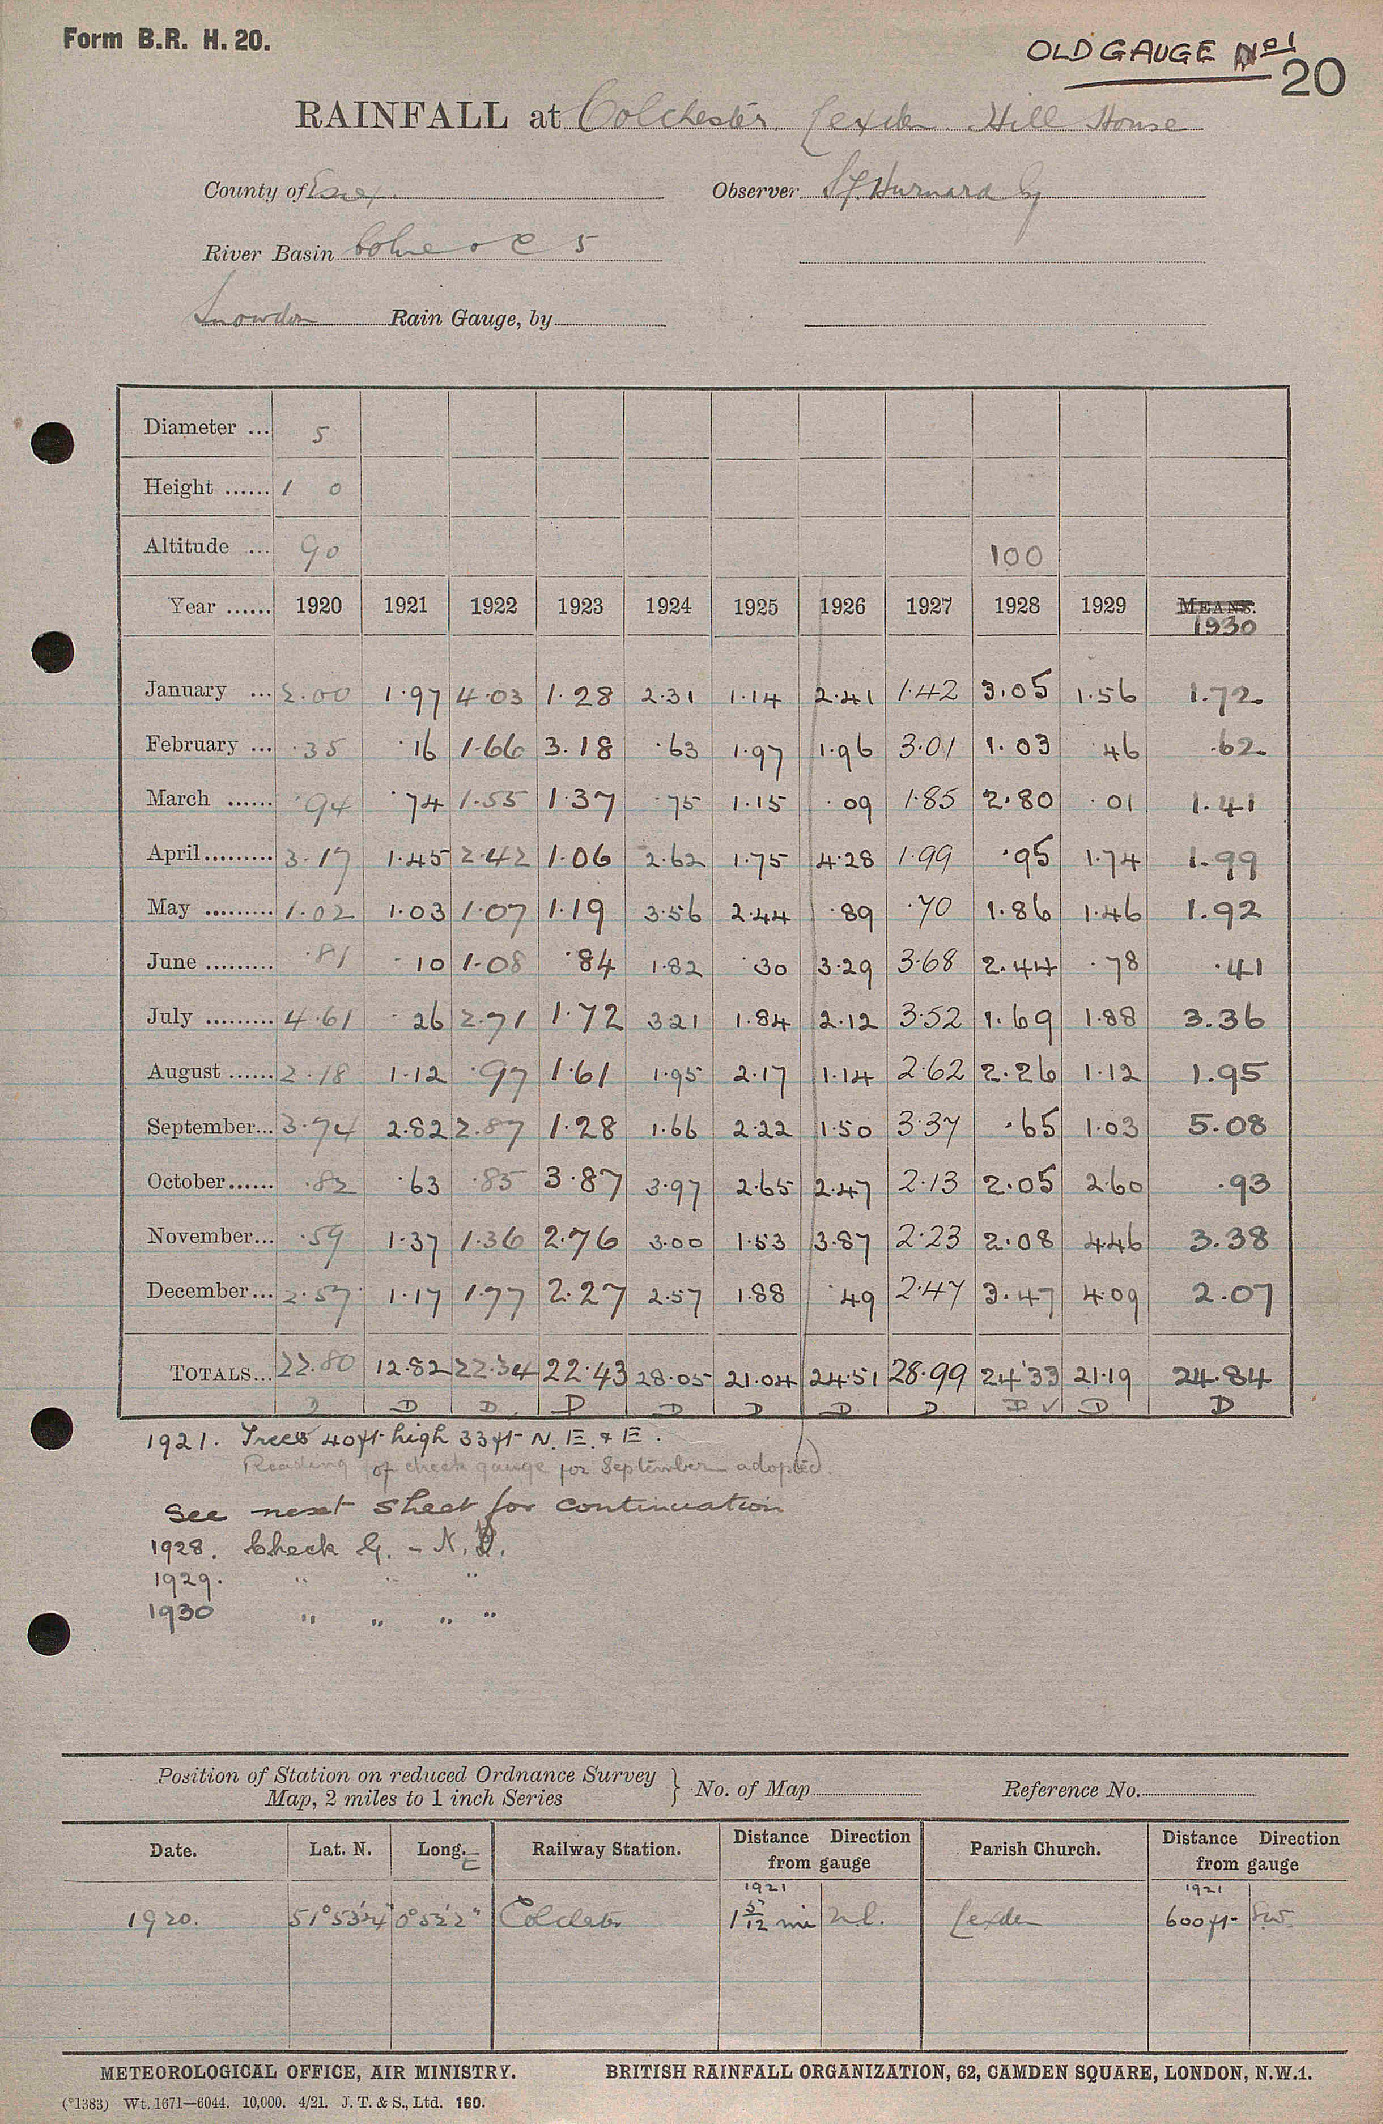 Form B.R. H. 20.
OLD GAUGE No 1
20
RAINFALL at Colchester Lexden Hill House
County of Essex. Observer Hurnard
River Basin Colne 5
Snowdon Rain Gauge, by
Diameter ... 5
Height ...... 1 0
Altitude ... 90 100
Year ...... 1920 1921 1922 1923 1924 1925 1926 1927 1928 1929 MEANS. 1930
January ... 2.00 1.97 4.03 1.28 2.31 1.14 2.41 1.42 3.05 1.56 1.72
February ... .35 .16 1.66 3.18 .63 1.97 1.96 3.01 1.03 .46 .62
March ...... .94 .74 1.55 1.37 .75 1.15 .09 1.85 2.80 .01 1.41
April ......... 3.17 1.45 2.42 1.06 2.62 1.75 4.28 1.99 .95 1.74 1.99
May ......... 1.02 1.03 1.07 1.19 3.56 2.44 .89 .70 1.86 1.46 1.92
June ......... .81 .10 1.08 .84 1.82 .30 3.29 3.68 2.44 .78 .41
July ......... 4.61 .26 2.71 1.72 3.21 1.84 2.12 3.52 1.69 1.88 3.36
August ...... 2.18 1.12 .97 1.61 1.95 2.17 1.14 2.62 2.26 1.12 1.95
September... 3.74 2.82 2.87 1.28 1.66 2.22 1.50 3.37 .65 1.03 5.08
October...... .82 .63 .85 3.87 3.97 2.65 2.47 2.13 2.05 2.60 .93
November... .59 1.37 1.36 2.76 3.00 1.53 3.87 2.23 2.08 4.46 3.38
December... 2.57 1.17 1.77 2.27 2.57 1.88 .49 2.47 3.47 4.09 2.07
TOTALS... 22.80 12.82 22.34 22.43 28.05 21.04 24.51 28.99 24.33 21.19 24.84
D D D D D D D D D ✓ D D
1921. Trees 40ft high 33ft N.E. & E.
Reading of check gauge for September adopted.
See next sheet for continuation
1928. Check G. - N.
1929. " " "
1930 " " " "
Position of Station on reduced Ordnance Survey Map, 2 miles to 1 inch Series } No. of Map Reference No.
Date. Lat. N. Long. E Railway Station. Distance Direction from gauge Parish Church. Distance Direction from gauge
1921 1921
1920. 51° 53' 24" 0° 52' 2" Colchester 1 5/12 mi N.E. Lexden 600ft S.W.
METEOROLOGICAL OFFICE, AIR MINISTRY. BRITISH RAINFALL ORGANIZATION, 62, CAMDEN SQUARE, LONDON, N.W.1.
(*1383) Wt. 1671—6044. 10,000. 4/21. J. T. & S., Ltd. 160.